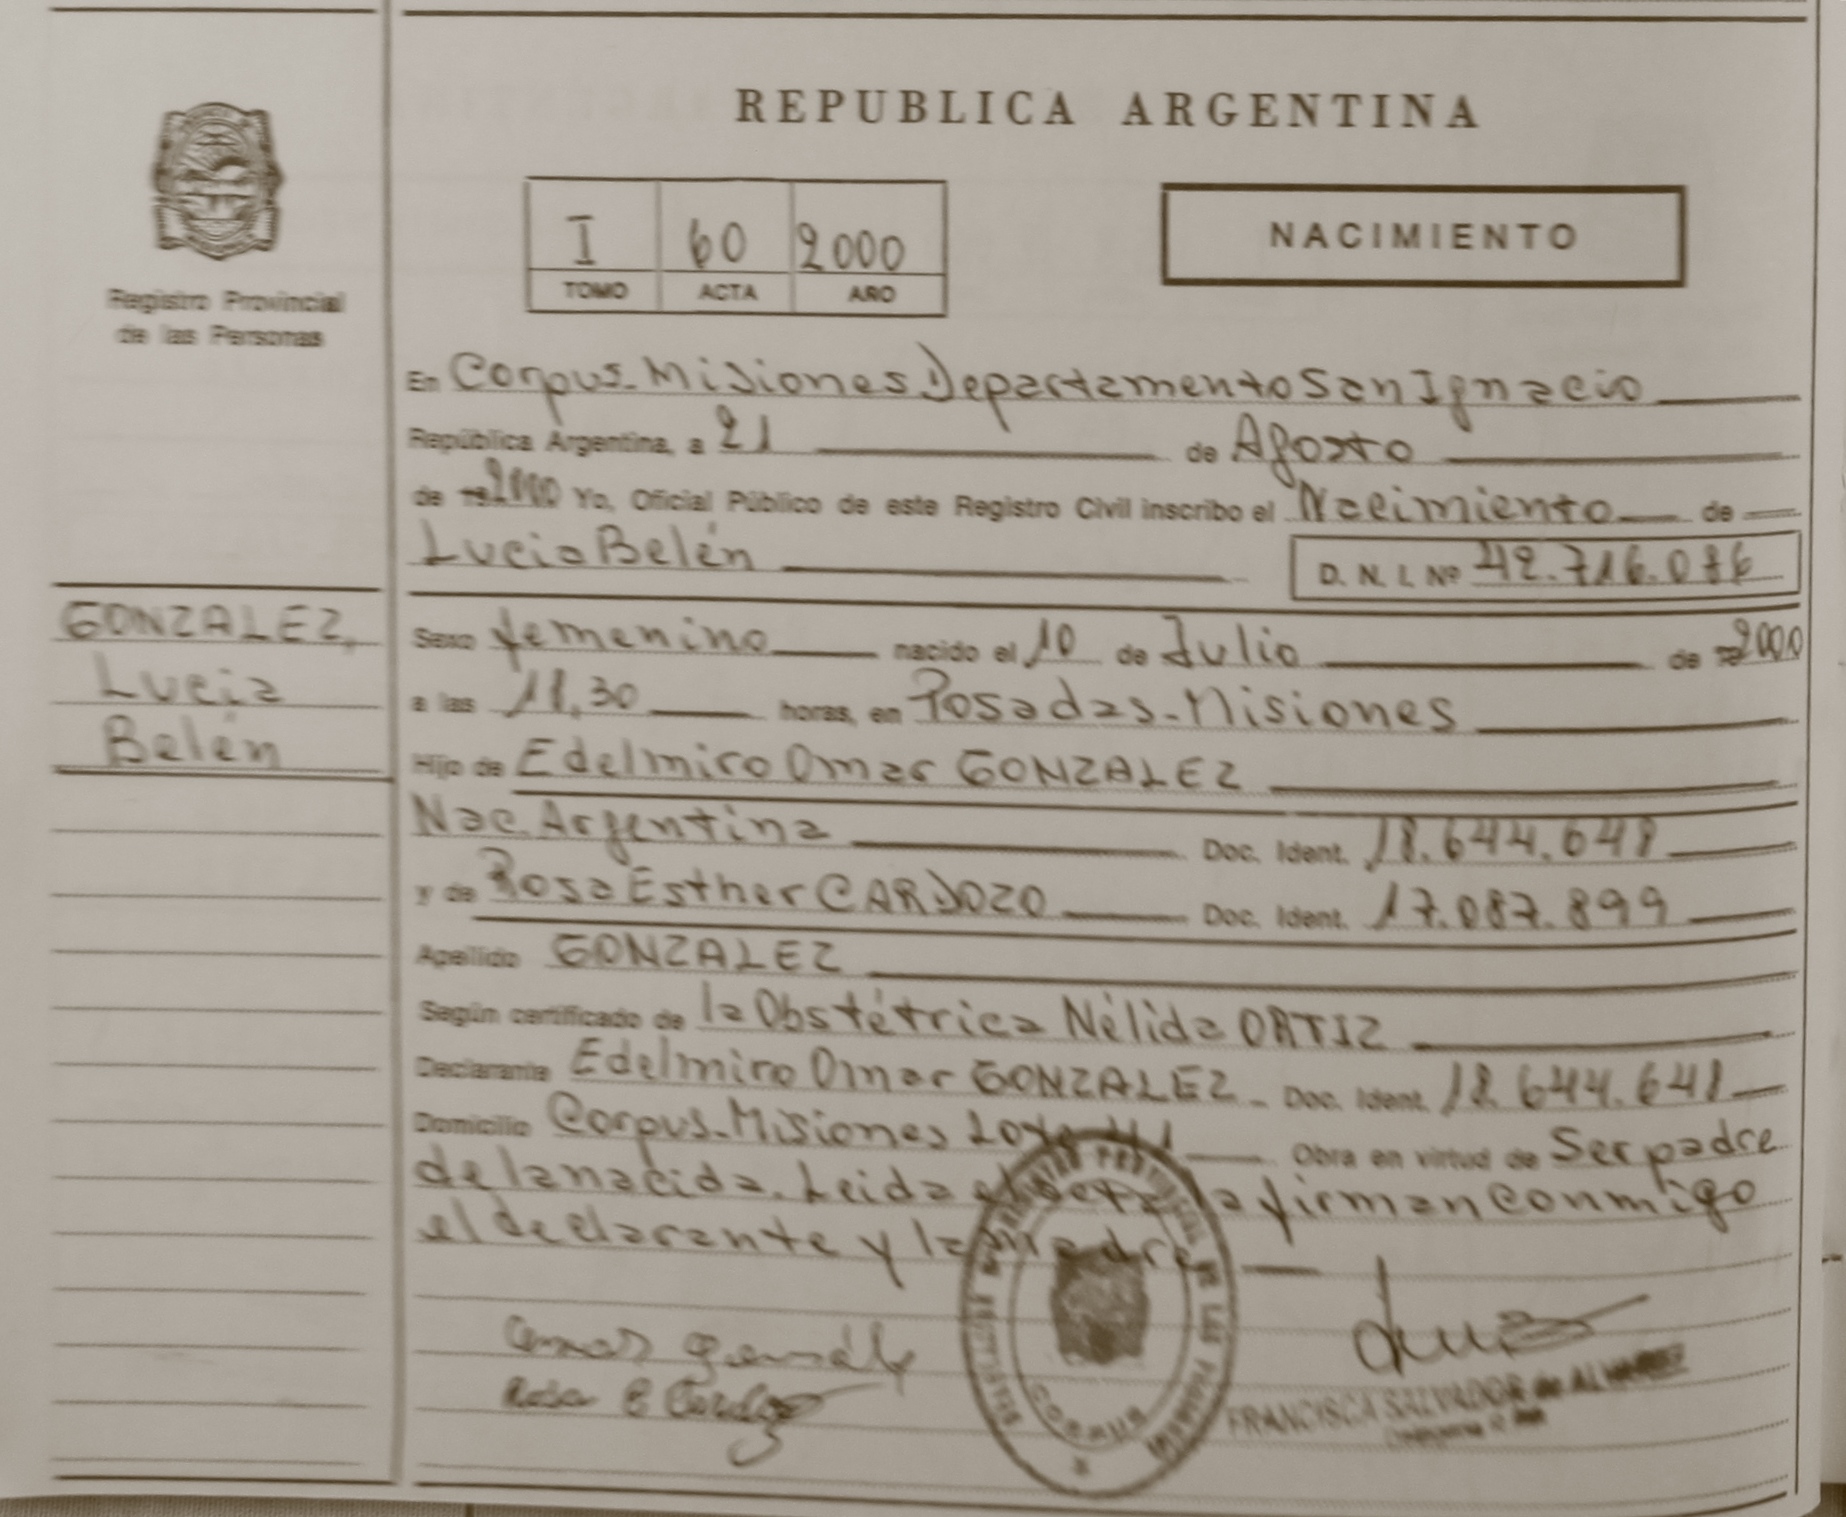 REPUBLICA ARGENTINA
Registro Provincial
de las Personas
I 60 2000
TOMO ACTA AÑO
NACIMIENTO
En Corpus-Misiones Departamento San Ignacio
República Argentina, a 21 de Agosto
de 2000 Yo, Oficial Público de este Registro Civil inscribo el Nacimiento de
Lucia Belén D. N. I. Nº 42.716.076
GONZALEZ,
Lucia
Belén
Sexo femenino nacido el 10 de Julio de 2000
a las 11,30 horas, en Posadas-Misiones
Hijo de Edelmiro Omar GONZALEZ
Nac. Argentina Doc. Ident. 18.644.648
y de Rosa Esther CARDOZO Doc. Ident. 17.087.899
Apellido GONZALEZ
Según certificado de la Obstétrica Nélida ORTIZ
Declarante Edelmiro Omar GONZALEZ Doc. Ident. 18.644.648
Domicilio Corpus-Misiones Lote Obra en virtud de Ser padre
de la nacida. Leida el acta la firman conmigo
el declarante y la madre
Rosa E Cardozo
CORPUS
FRANCISCA SALVADOR de ALVAREZ